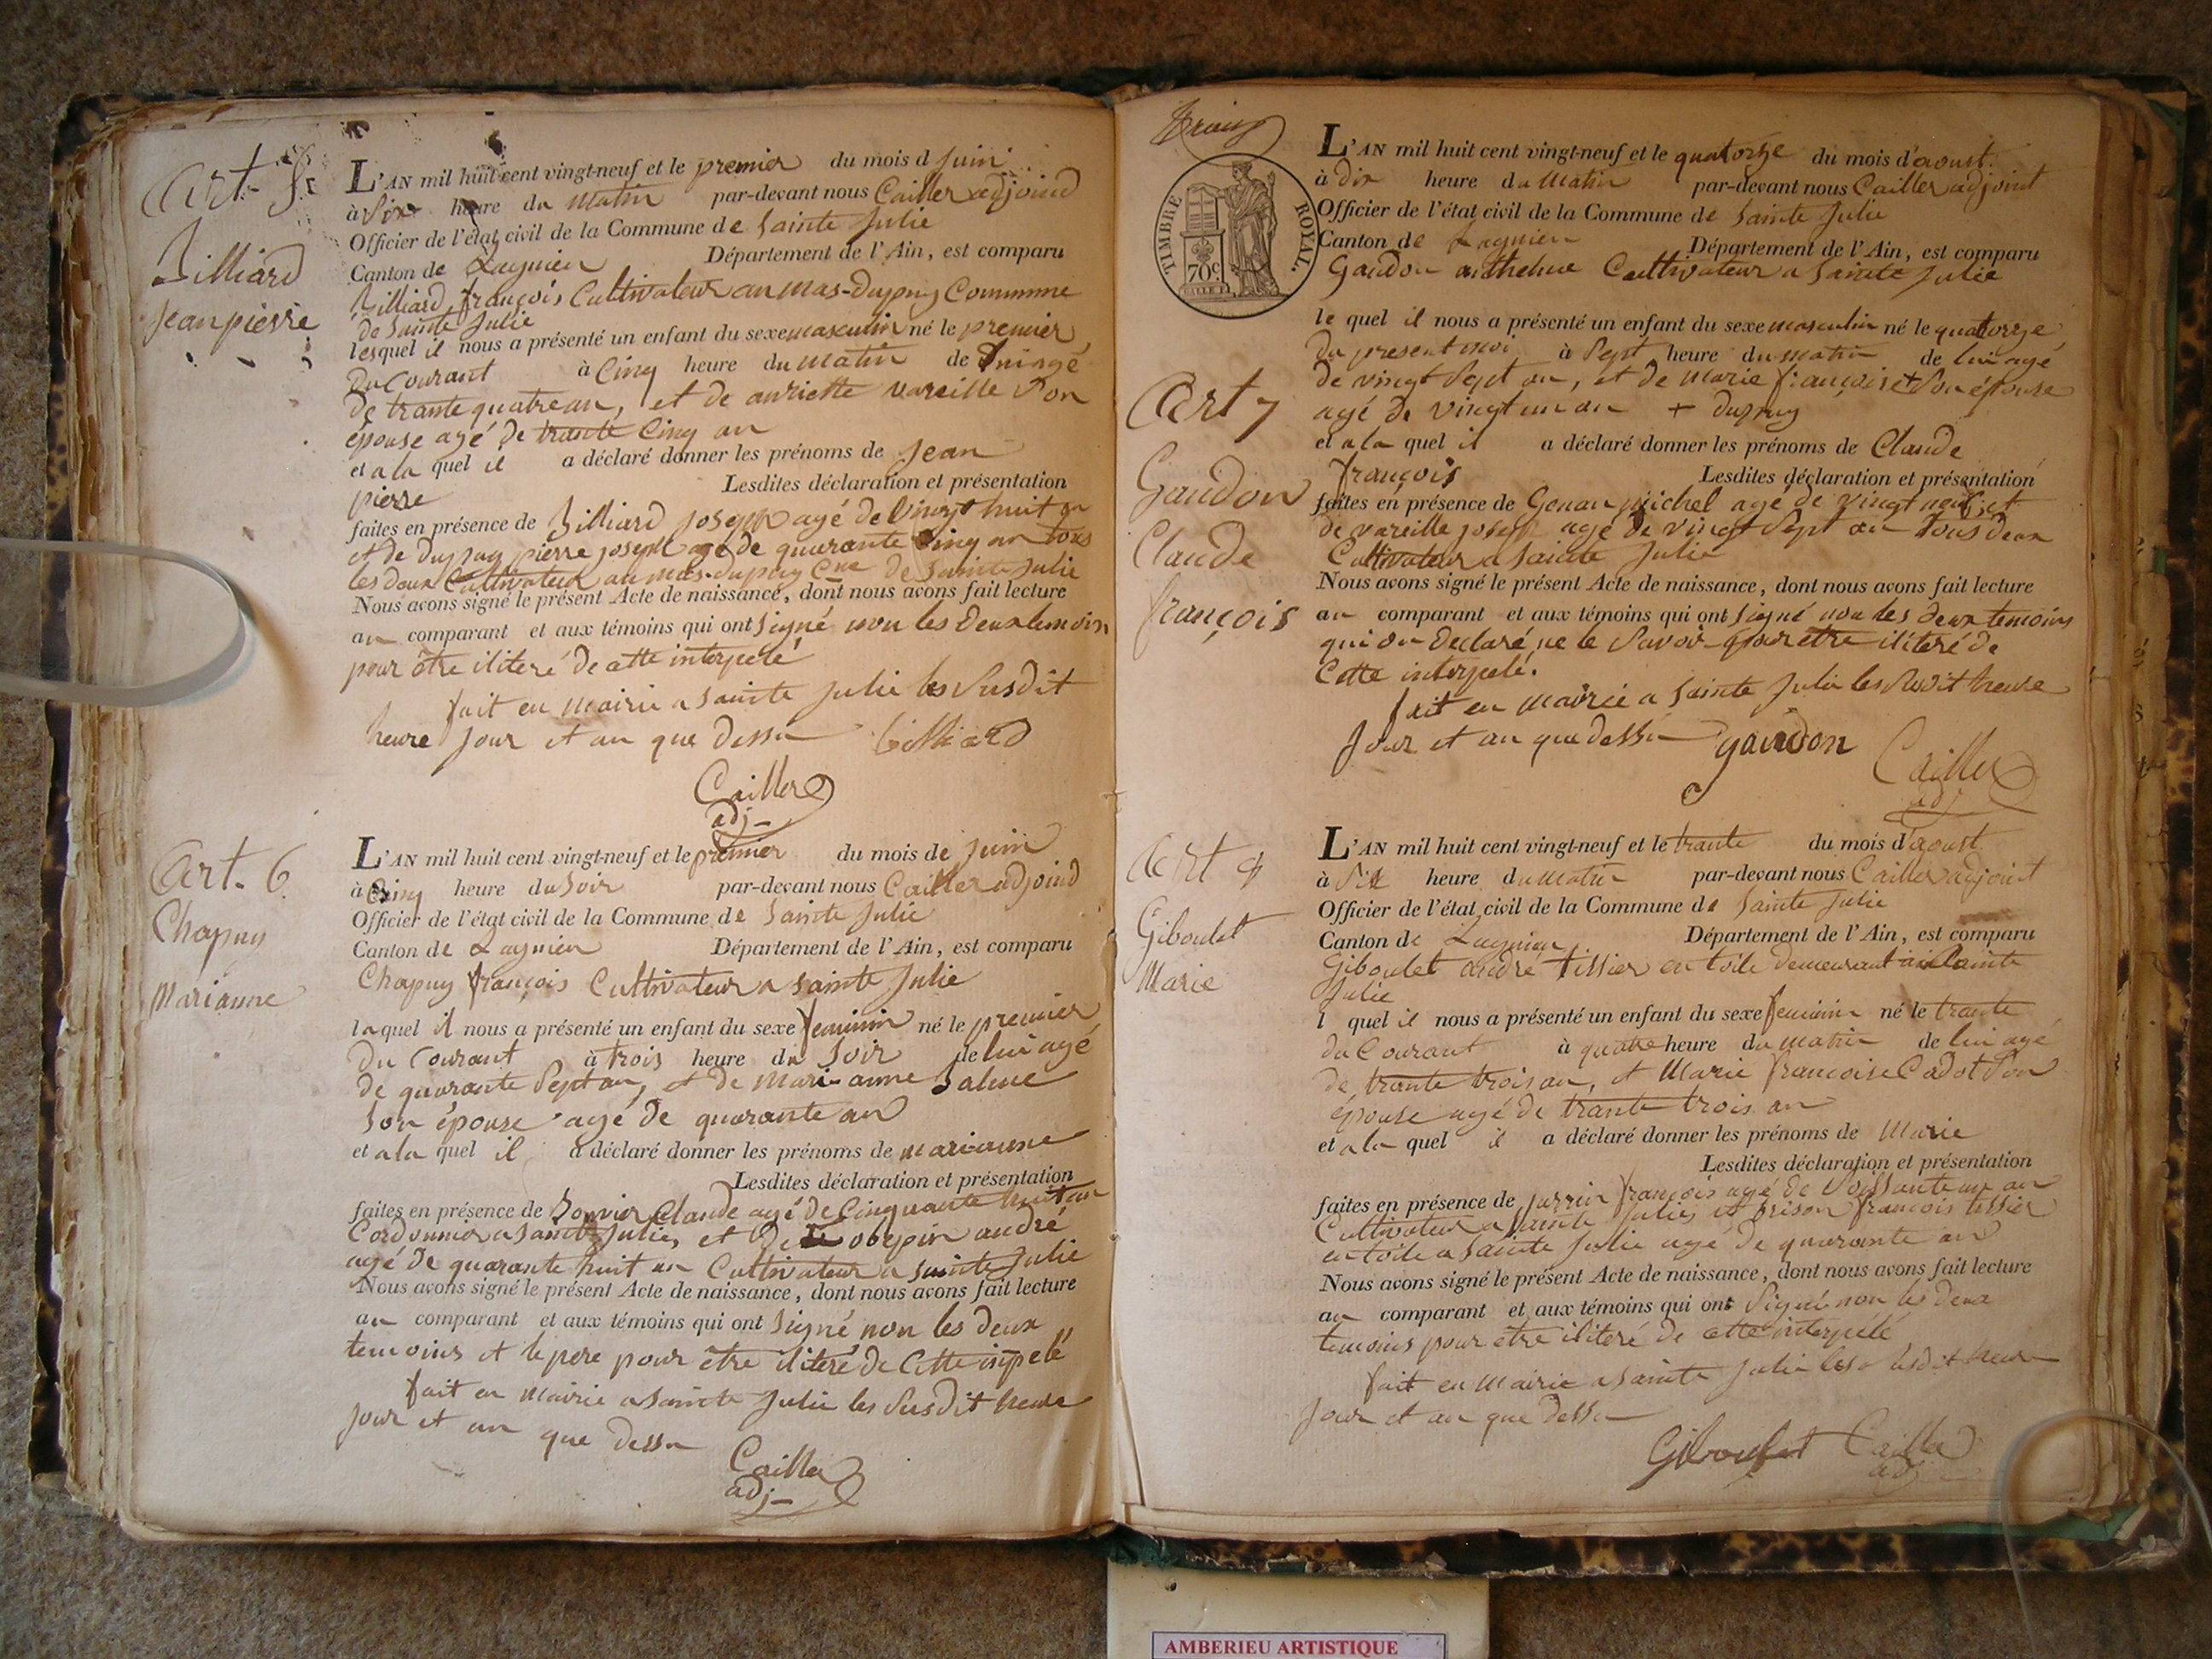 Art. 5
Billiard
jean pierre
L'AN mil huit cent vingt-neuf et le premier du mois d juin
à six heure du matin par-devant nous Cailler adjoind
Officier de l'état civil de la Commune de Sainte Julie
Canton de Lagnieu Département de l'Ain, est comparu
Billiard françois Cultivateur au mas-Dupuy Commune
de Sainte Julie
lesquel il nous a présenté un enfant du sexe masculin né le premier
Du Courant à Cinq heure du matin de lui agé
de trante quatre an, et de anriette vareille Son
épouse agé de trante Cinq an
et a la quel il a déclaré donner les prénoms de jean
pierre Lesdites déclaration et présentation
faites en présence de Billiard joseph agé de vingt huit an
et de dupuy pierre joseph agé de quarante Cinq an tous
les deux Cultivateur au mas-dupuy Cne de Sainte Julie
Nous avons signé le présent Acte de naissance, dont nous avons fait lecture
au comparant et aux témoins qui ont signé non les Deux temoin
pour être iliteré de cette interpelé
fait en mairie a Sainte Julie les Susdit
heure jour et an que Dessu billiard
Cailler
adj
Art. 6
Chapuy
Marianne
L'AN mil huit cent vingt-neuf et le premier du mois de juin
à Cinq heure du Soir par-devant nous Cailler adjoind
Officier de l'état civil de la Commune de Sainte Julie
Canton de Lagnieu Département de l'Ain, est comparu
Chapuy françois Cultivateur a Sainte Julie
laquel il nous a présenté un enfant du sexe feminin né le premier
Du Courant à trois heure du Soir de lui agé
de quarante Sept an, et de Mari-anne Balme
Son épouse agé de quarante an
et a la quel il a déclaré donner les prénoms de marianne
Lesdites déclaration et présentation
faites en présence de Bonvier Claude agé de Cinquante huit an
Cordonnier a Sainte Julie, et De obepin andré
agé de quarante huit an Cultivateur a Sainte Julie
Nous avons signé le présent Acte de naissance, dont nous avons fait lecture
au comparant et aux témoins qui ont signé non les deux
temoins et le pere pour être iliteré de Cette inpelé
fait en mairie a Sainte Julie les Susdit heure
jour et an que dessu
Cailler
adj
TIMBRE ROYAL.
70c
L'AN mil huit cent vingt-neuf et le quatorze du mois d'aoust.
à dix heure du matin par-devant nous Cailler adjoint
Officier de l'état civil de la Commune de Sainte Julie
Canton de Lagnieu Département de l'Ain, est comparu
Gaudon anthelme Cultivateur a Sainte Julie
le quel il nous a présenté un enfant du sexe masculin né le quatorze
Du present moi à Sept heure du matin de lui agé
de vingt Sept an, et de Marie françoise + Son épouse
agé de vingt un an + dupuy
et a la quel il a déclaré donner les prénoms de Claude
françois Lesdites déclaration et présentation
faites en présence de Genau michel agé de vingt neuf et
de vareille joseph agé de vingt Sept an tous deux
Cultivateur a Sainte Julie
Nous avons signé le présent Acte de naissance, dont nous avons fait lecture
au comparant et aux témoins qui ont signé non les deux temoins
qui on Declaré ne le Savoir pour être iliteré de
Cette interpelé.
fait en mairie a Sainte Julie les Susdit heure
jour et an que dessu gaudon Cailler
adj
Art 7
Gaudon
Claude
françois
Art
Giboulet
Marie
L'AN mil huit cent vingt-neuf et le trante du mois d'aoust
à Six heure du matin par-devant nous Cailler adjoint
Officier de l'état civil de la Commune de Sainte Julie
Canton de Lagnieu Département de l'Ain, est comparu
Giboulet andré tissier en toile demeurant a Sainte
Julie
l quel il nous a présenté un enfant du sexe feminin né le trante
du Courant à quatre heure du matin de lui agé
de trante trois an, et Marie francoise Cadot Son
épouse agé de trante trois an
et a la quel il a déclaré donner les prénoms de Marie
Lesdites déclaration et présentation
faites en présence de Jarrin françois agé de Soissante un an
Cultivateur a Sainte Julie, et brison francois tissier
en toile a Sainte Julie agé de quarante an
Nous avons signé le présent Acte de naissance, dont nous avons fait lecture
au comparant et aux témoins qui ont Signé non les deux
temoins pour être iliteré de cette interpelé
fait en mairie a Sainte Julie les Susdit heure
jour et an que dessu
Giboulet Cailler
adj
AMBERIEU ARTISTIQUE